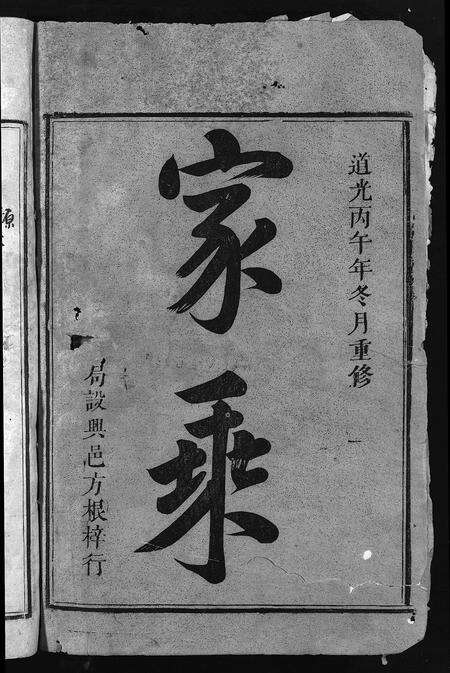 道光丙午年冬月重修
家乘
局設興邑方根梓行
源